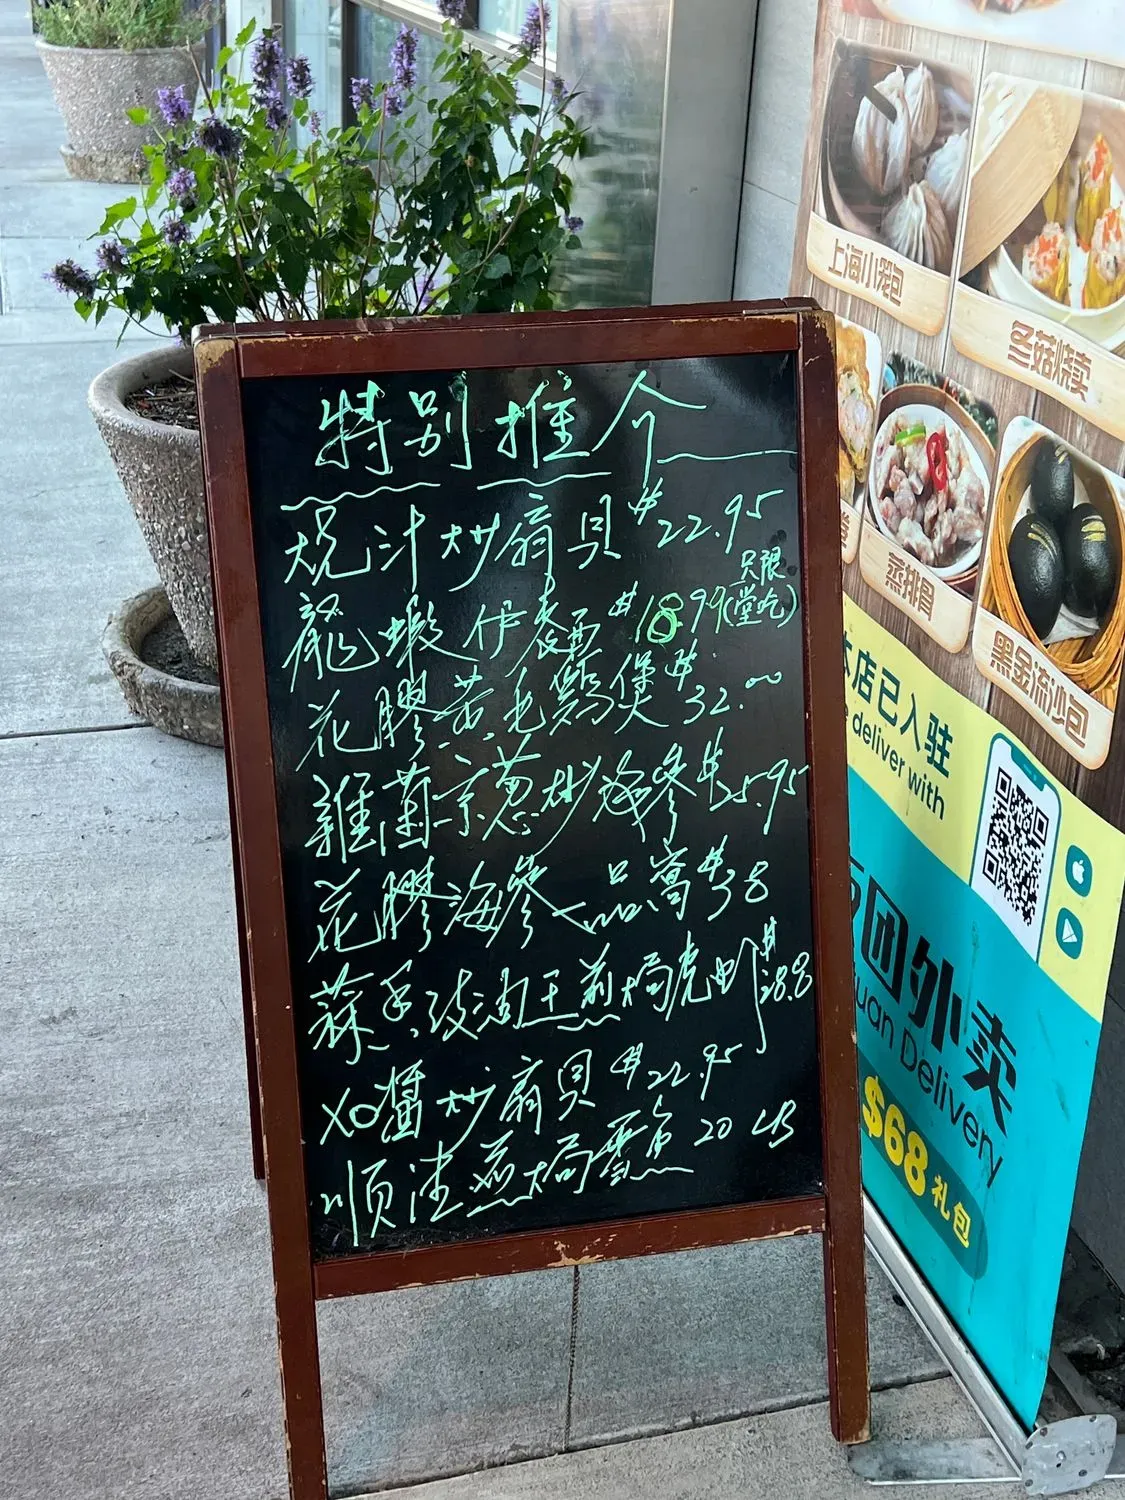 特别推介
烧汁炒扇贝 $22.95
龍蝦伊麵 $18.99(只限堂吃)
花膠黄毛鷄煲 $32.00
雜菌京葱炒海參 $25.95
花膠海參一品窩 $38
蒜香豉油王煎焗虎虾 $28.8
XO醬炒扇贝 $22.95
顺德煎焗雲鱼 20 LB
上海小笼包
冬菇烧卖
蒸排骨
黑金流沙包
本店已入驻
deliver with
团外卖
uan Delivery
$68礼包